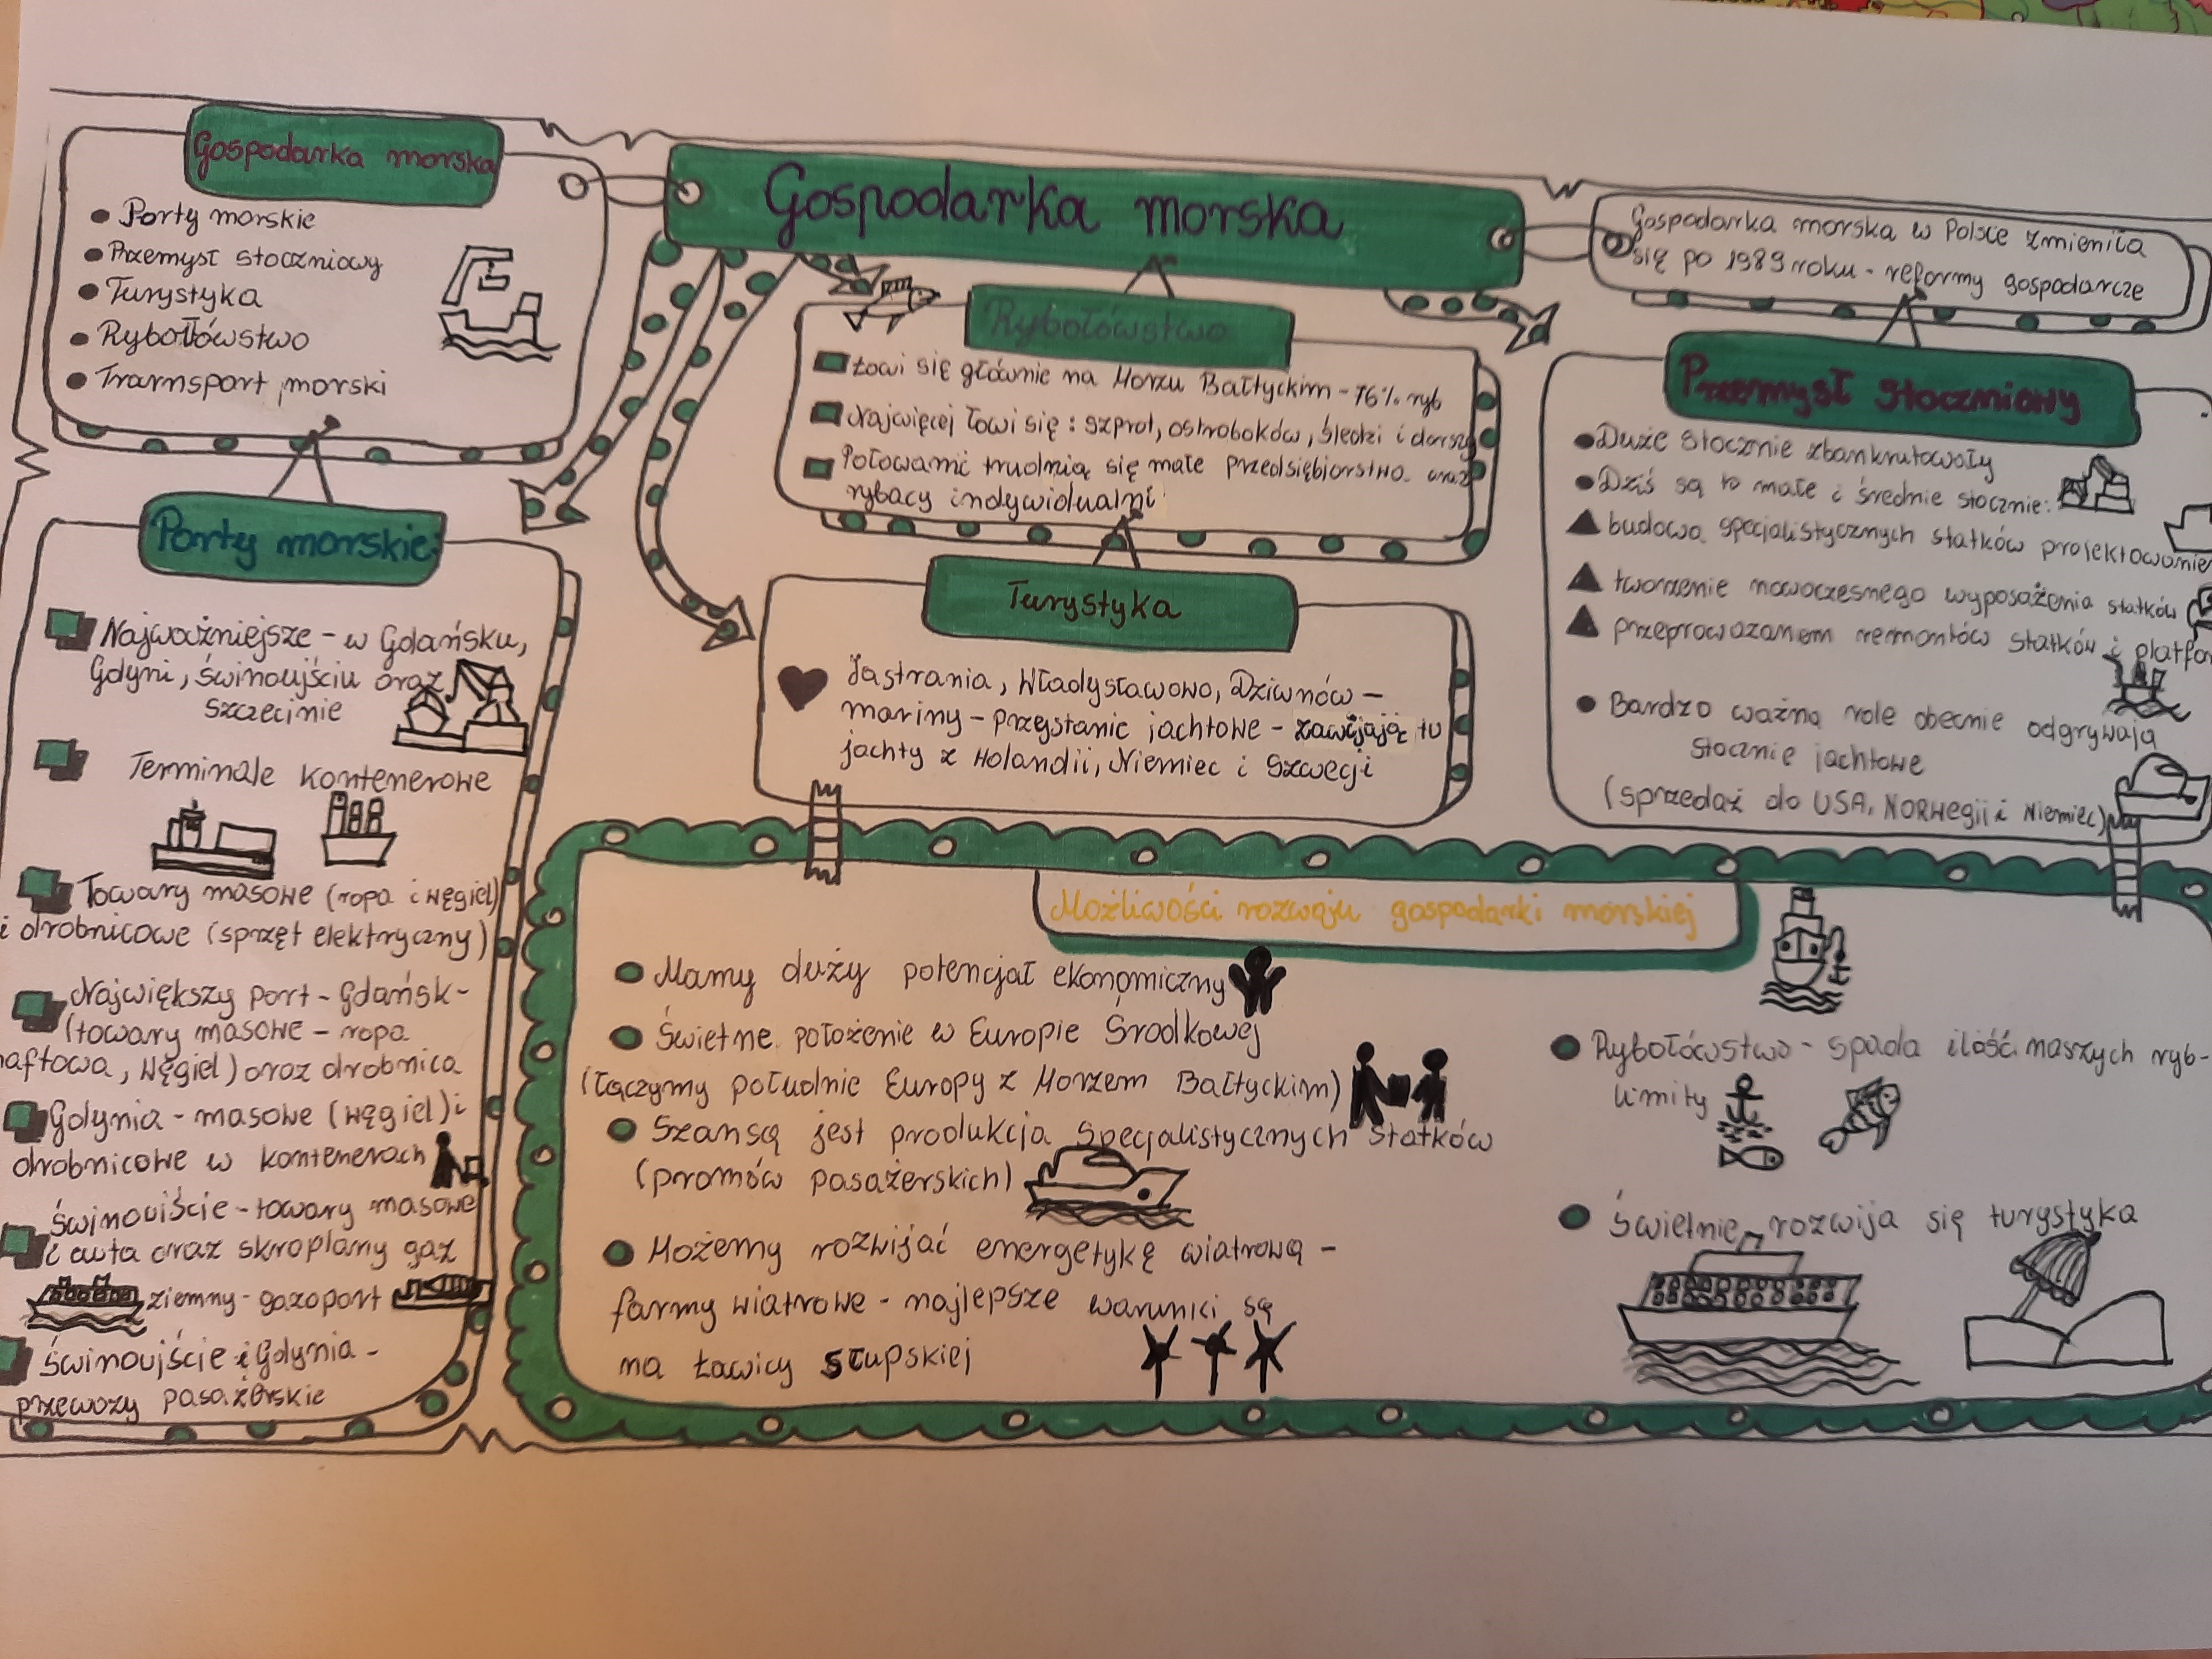 Gospodarka morska
Gospodarka morska
• Porty morskie
• Przemysł stoczniowy
• Turystyka
• Rybołówstwo
• Transport morski
Gospodarka morska w Polsce zmieniła
się po 1989 roku - reformy gospodarcze
Porty morskie
Najważniejsze - w Gdańsku,
Gdyni, Świnoujściu oraz
Szczecinie
Terminale kontenerowe
Towary masowe (ropa i węgiel)
i drobnicowe (sprzęt elektryczny)
Największy port - Gdańsk -
(towary masowe - ropa
naftowa, węgiel) oraz drobnica
Gdynia - masowe (węgiel) i
drobnicowe w kontenerach
Świnoujście - towary masowe
i auta oraz skroplany gaz
ziemny - gazoport
Świnoujście i Gdynia -
przewozy pasażerskie
Rybołówstwo
Łowi się głównie na Morzu Bałtyckim - 76% ryb
Najwięcej łowi się: szprot, ostroboków, śledzi i dorszy
Połowami trudnią się małe przedsiębiorstwa oraz
rybacy indywidualni
Turystyka
Jastrania, Władysławowo, Dziwnów -
mariny - przystanie jachtowe - zawijają tu
jachty z Holandii, Niemiec i Szwecji
Przemysł stoczniowy
• Duże stocznie zbankrutowały
• Dziś są to małe i średnie stocznie:
▲ budowa specjalistycznych statków projektowanie
▲ tworzenie nowoczesnego wyposażenia statków
▲ przeprowadzaniem remontów statków i platfo
• Bardzo ważną role obecnie odgrywają
stocznie jachtowe
(sprzedaż do USA, Norwegii i Niemiec)
Możliwości rozwoju gospodarki morskiej
• Mamy duży potencjał ekonomiczny
• Świetne położenie w Europie Środkowej
(Łączymy południe Europy z Morzem Bałtyckim)
• Szansą jest produkcja specjalistycznych statków
(promów pasażerskich)
• Możemy rozwijać energetykę wiatrową -
farmy wiatrowe - najlepsze warunki są
na Ławicy Słupskiej
• Rybołówstwo - spada ilość naszych ryb -
limity
• Świetnie rozwija się turystyka